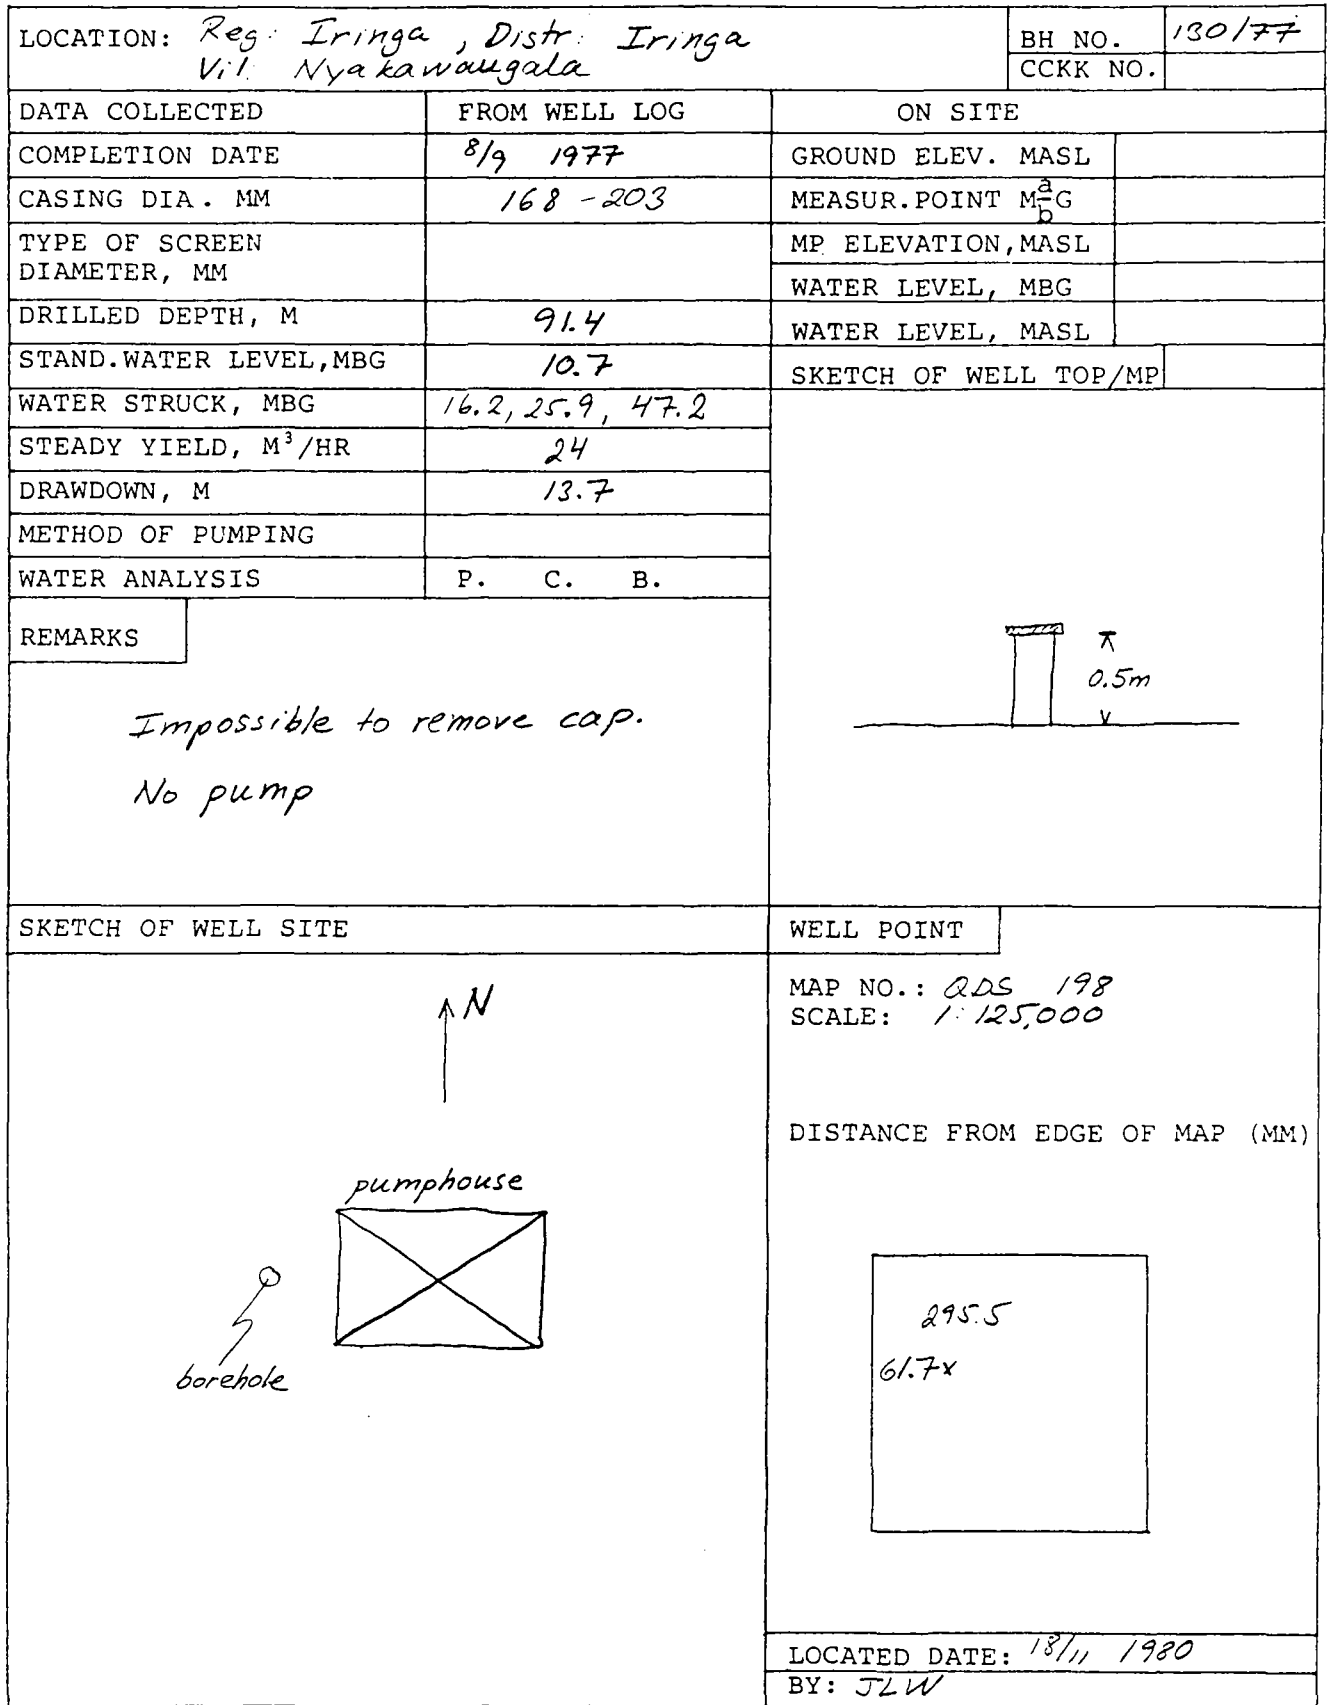 LOCATION: Reg: Iringa , Distr: Iringa
Vil. Nyakawaugala
BH NO. 130/77
CCKK NO.
DATA COLLECTED FROM WELL LOG ON SITE
COMPLETION DATE 8/9 1977
CASING DIA. MM 168-203
TYPE OF SCREEN
DIAMETER, MM
DRILLED DEPTH, M 91.4
STAND.WATER LEVEL,MBG 10.7
WATER STRUCK, MBG 16.2, 25.9, 47.2
STEADY YIELD, M³/HR 24
DRAWDOWN, M 13.7
METHOD OF PUMPING
WATER ANALYSIS P. C. B.
GROUND ELEV. MASL
MEASUR.POINT M a/b G
MP ELEVATION,MASL
WATER LEVEL, MBG
WATER LEVEL, MASL
SKETCH OF WELL TOP/MP
0.5m
REMARKS
Impossible to remove cap.
No pump
SKETCH OF WELL SITE
N
pumphouse
borehole
WELL POINT
MAP NO.: QDS 198
SCALE: 1:125,000
DISTANCE FROM EDGE OF MAP (MM)
295.5
61.7x
LOCATED DATE: 18/11 1980
BY: JLW